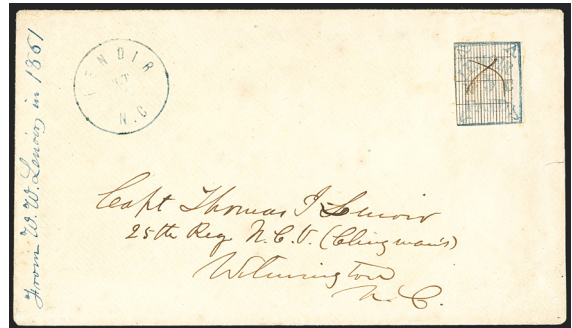 From W. W. Lenoir, in 1861
LENOIR
N.C
Capt Thomas I Lenoir
25th Reg. N.C.V. (Clingman's)
Wilmington
N.C.